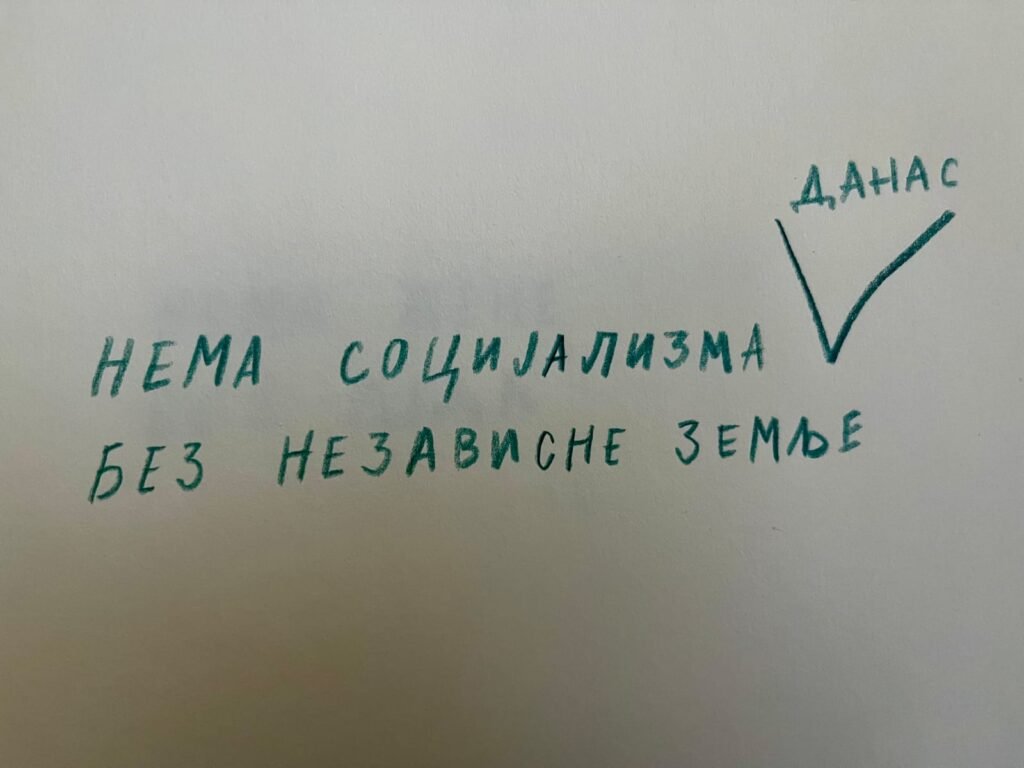 ДАНАС
НЕМА СОЦИЈАЛИЗМА
БЕЗ НЕЗАВИСНЕ ЗЕМЉЕ